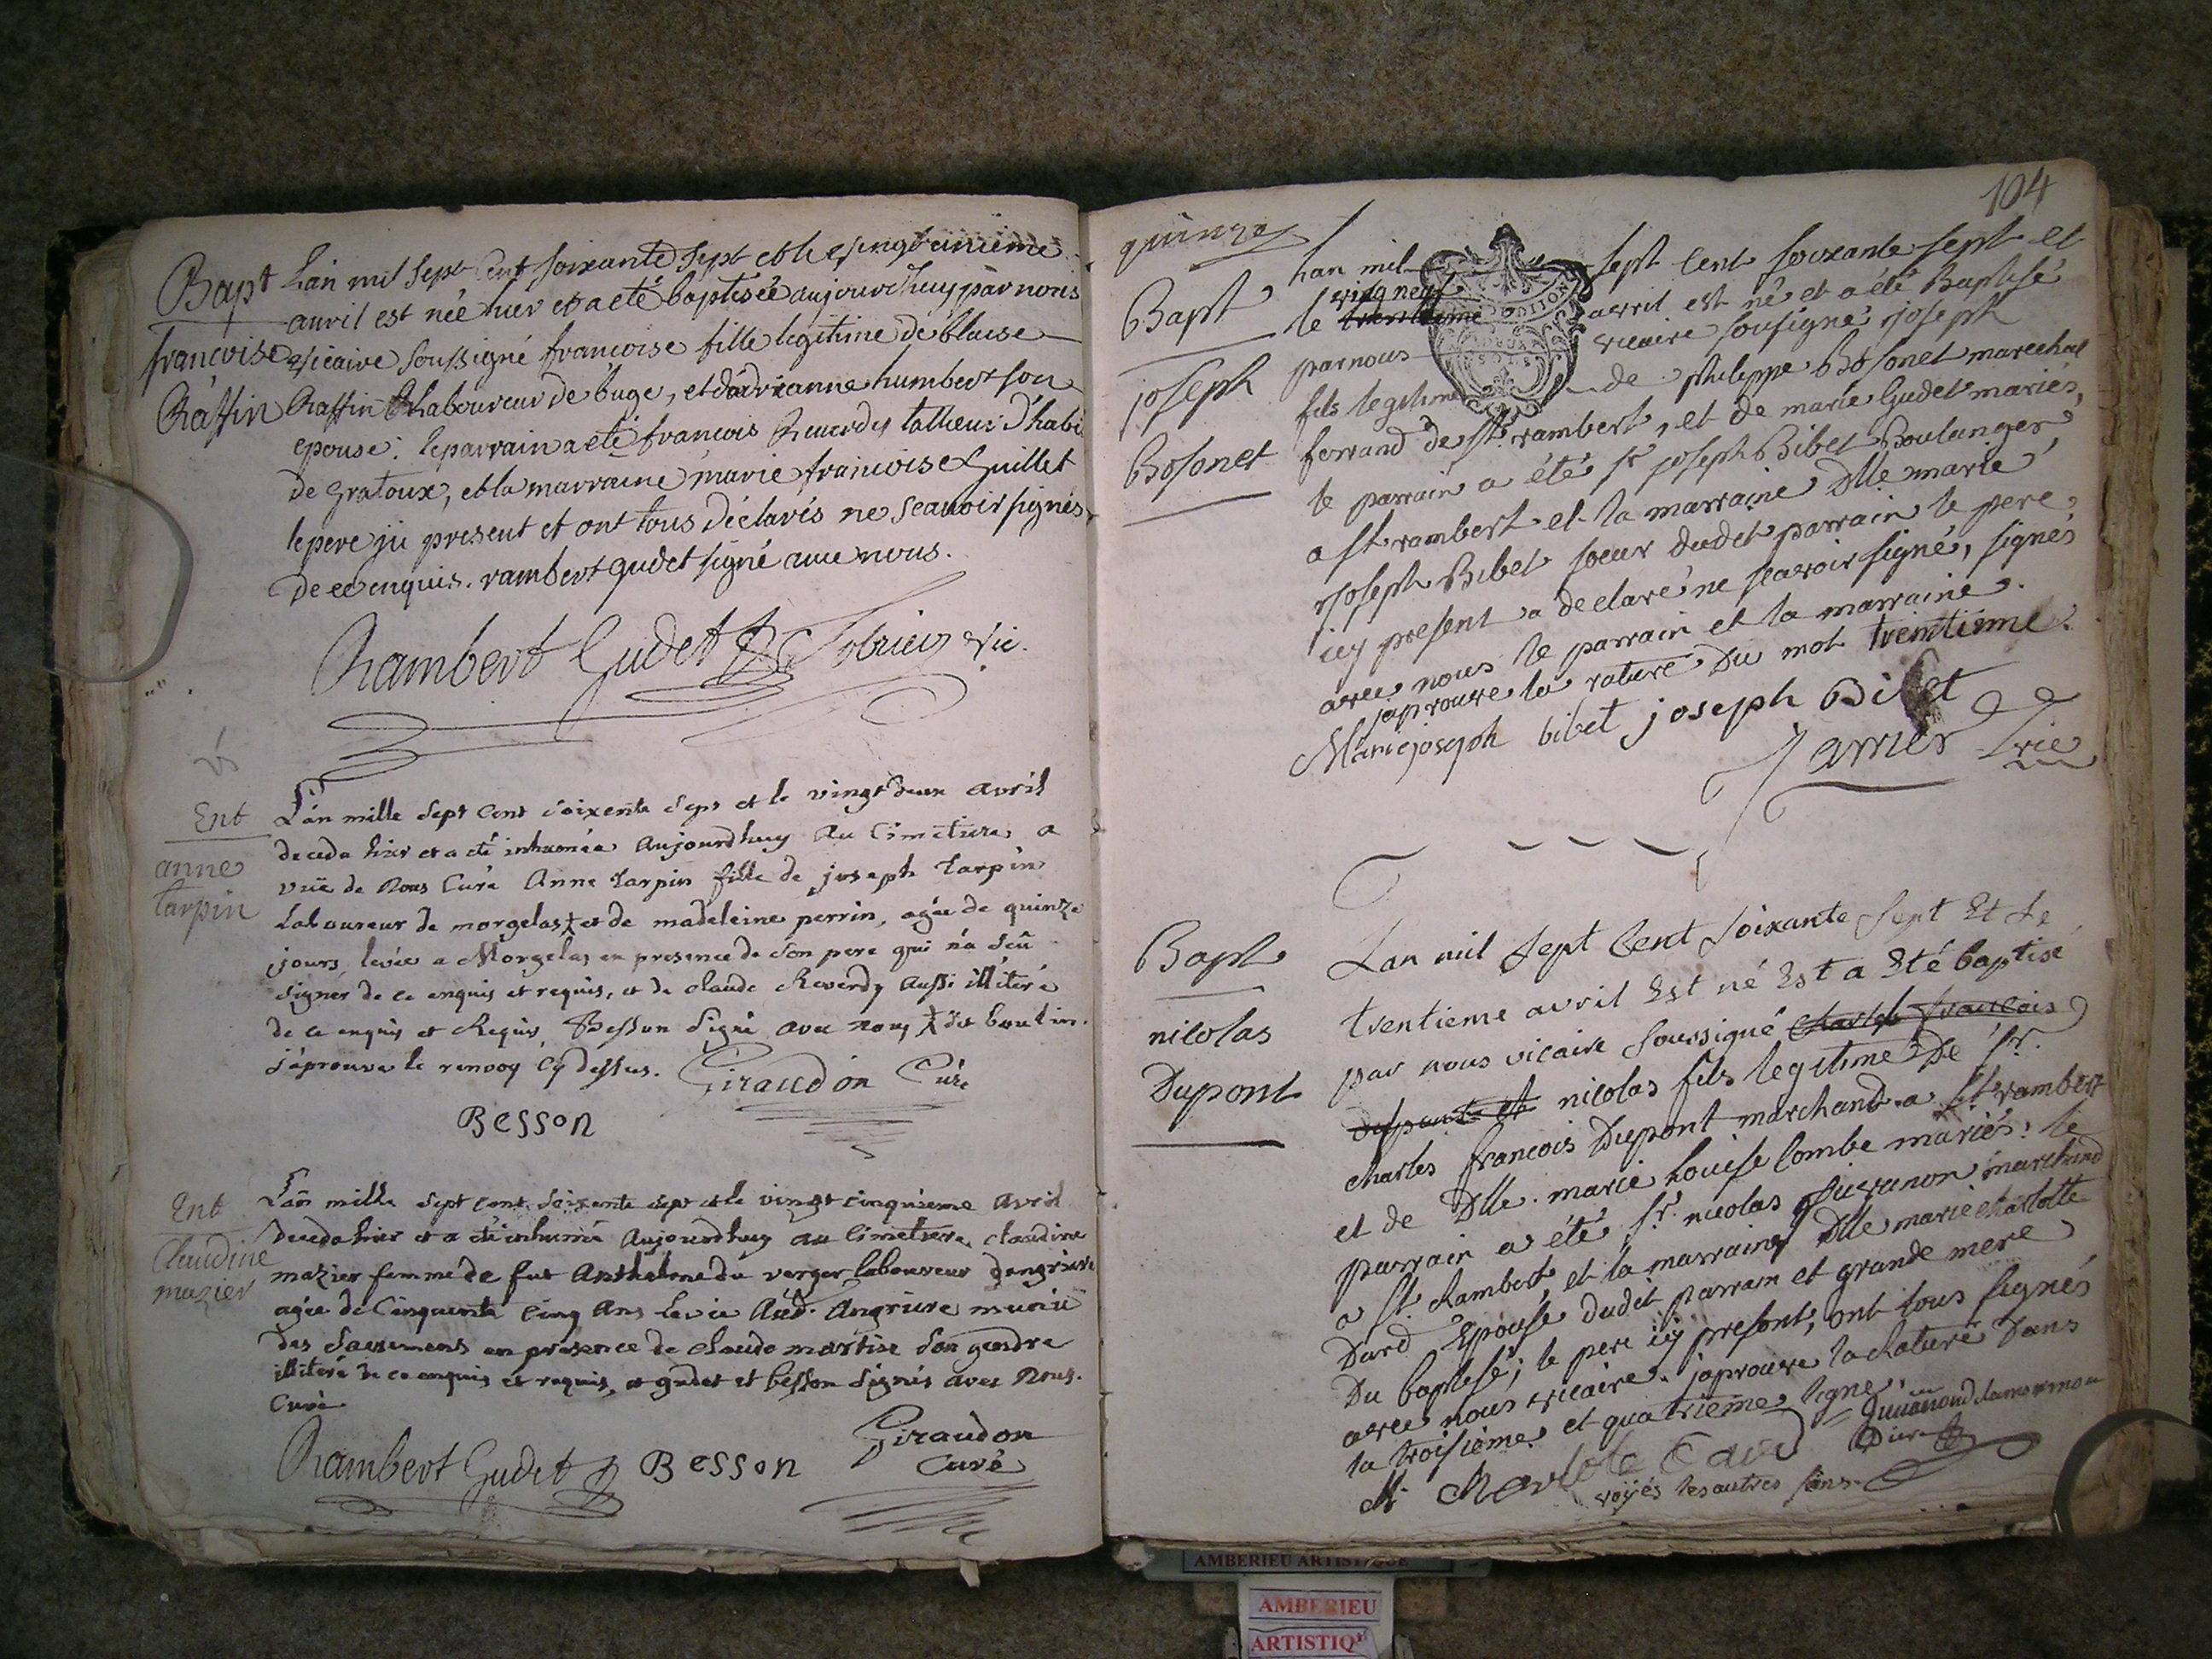 Bapt
francoise
Raffin
Lan mil sept cent soixante sept et le vingtunieme
avril est née hier et a eté baptisée aujourdhuy par nous
vicaire soussigné francoise fille legitime de blaise
Raffin laboureur de buge, et dadrianne humbert son
epouse: le parrain a eté francois Reverdy tailleur d'habi
de gratoux, et la marraine marie francoise Guillet
le pere ici present et ont tous déclarés ne scavoir signés
de ce enquis. rambert gudet signé avec nous.
Rambert Gudet vic.
Ent
anne
tarpin
L'an mille sept cent soixente sept et le vingt deux avril
deceda hier et a eté inhumée aujourdhuy au cimetiere a
vüe de nous curé Anne tarpin fille de joseph tarpin
laboureur de morgelas et de madeleine perrin, agée de quinze
jours levée a Morgelas en presence de son pere qui n'a sçu
signer de ce enquis et requis, et de claude Reverdy aussi illiteré
de ce enquis et Requis, Besson signé avec nous dit boutin.
j'aprouve le renvoy cy dessus. Giraudon Curé
Besson
Ent
Claudine
mazier
L'an mille sept cent soixente sept et le vingt cinquieme avril
deceda hier et a eté inhumée aujourdhuy au cimetiere claudine
mazier femme de fut Anthelme du verger laboureur dangriere
agée de Cinquente cinq ans levée aud. Angriere munie
des sacrements en presence de claude martise son gendre
illiteré de ce enquis et requis, et gudet et besson signés avec nous.
curé
Rambert Gudet Besson Giraudon
Curé
104
quinze
Bapt
joseph
Bosonet
Lan mil sept cent soixante sept et
le vingneuf trentieme avril est né et a été Baptisé
par nous vicaire sousigné joseph
fils legitime de philippe Bosonet marechal
ferrand de st rambert, et de marie Gudet mariés,
le parrain a été sr joseph Bibet Boulanger
a st rambert et la marraine Dlle marie
joseph Bibet soeur dudit parrain le pere
icy present a declaré ne scavoir signé, signés
avec nous le parrain et la marraine.
japrouve la rature du mot trentieme.
Marie joseph bibet joseph Bibet
Jarrier vic
Bapt
nicolas
Dupont
Lan mil sept cent soixante sept Et Le
trentieme avril Est né Est a Eté baptisé
par nous vicaire soussigné charles francois
dupont et nicolas fils legitime De sr.
charles francois Dupont marchand a st rambert
et de Dlle. marie louise Combe mariés: le
parrain a été sr. nicolas marchand
a st Rambert, et la marraine Dlle marie charlotte
Dard Epouse dudit parrain et grande mere
du baptisé; le pere icy present, ont tous signés
avec nous vicaire. japrouve la Rature dans
la troisieme et quatrieme ligne.
voyés les autres sins.
AMBERIEU ARTISTIQUE
AMBERIEU
ARTISTIQ